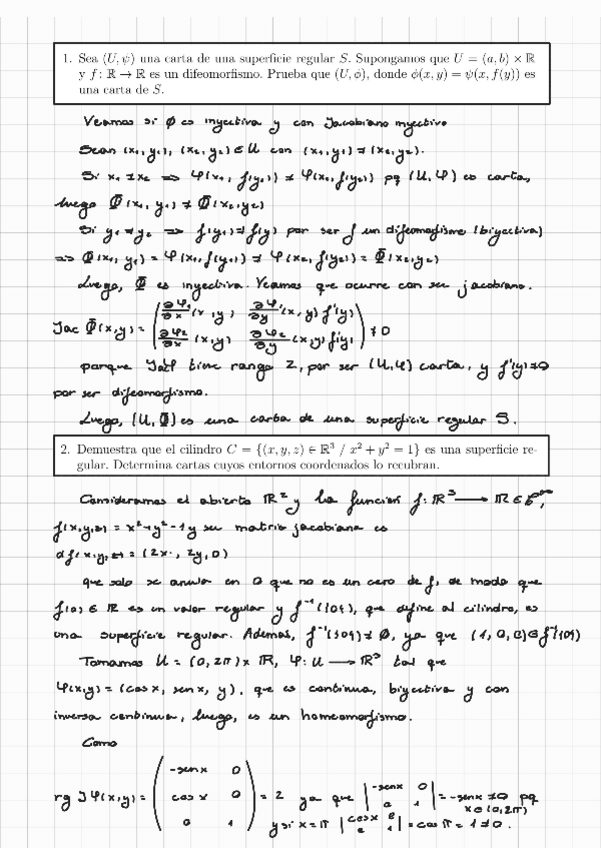 1. Sea (U, ψ) una carta de una superficie regular S. Supongamos que U = (a, b) × ℝ
y f : ℝ → ℝ es un difeomorfismo. Prueba que (U, ϕ), donde ϕ(x, y) = ψ(x, f(y)) es
una carta de S.
Veamos si Φ es inyectiva y con Jacobiano inyectivo
Sean (x₁, y₁), (x₂, y₂) ∈ U con (x₁, y₁) ≠ (x₂, y₂).
Si x₁ ≠ x₂ ⇒ φ(x₁, f(y₁)) ≠ φ(x₂, f(y₂)) pq (U, φ) es carta,
luego Φ(x₁, y₁) ≠ Φ(x₂, y₂)
Si y₁ ≠ y₂ ⇒ f(y₁) ≠ f(y) por ser f un difeomorfismo (biyectiva)
⇒ Φ(x₁, y₁) = φ(x₁, f(y₁)) ≠ φ(x₂, f(y₂)) = Φ(x₂, y₂)
Luego, Φ es inyectiva. Veamos que ocurre con su jacobiano.
Jac Φ(x, y) = ( ∂φ₁/∂x (x, y) ∂φ₁/∂y (x, y) f'(y) ; ∂φ₂/∂x (x, y) ∂φ₂/∂y (x, y) f'(y) ) ≠ 0
porque Jφ tiene rango 2, por ser (U, φ) carta, y f'(y) ≠ 0
por ser difeomorfismo.
Luego, (U, Φ) es una carta de una superficie regular S.
2. Demuestra que el cilindro C = {(x, y, z) ∈ ℝ³ / x² + y² = 1} es una superficie re-
gular. Determina cartas cuyos entornos coordenados lo recubran.
Consideramos el abierto ℝ² y la función f: ℝ³ → ℝ ∈ 𝒞^∞,
f(x, y, z) = x² + y² - 1 y su matriz jacobiana es
df(x, y, z) = (2x, 2y, 0)
que solo se anula en 0 que no es un cero de f, de modo que
f(0) ∈ ℝ es un valor regular y f⁻¹({0}), que define al cilindro, es
una superficie regular. Además, f⁻¹({0}) ≠ ∅, ya que (1, 0, 0) ∈ f⁻¹({0})
Tomamos U = (0, 2π) × ℝ, φ: U → ℝ³ tal que
φ(x, y) = (cos x, sen x, y), que es continua, biyectiva y con
inversa continua, luego, es un homeomorfismo.
Como
rg Jφ(x, y) = ( -sen x 0 ; cos x 0 ; 0 1 ) = 2 ya que | -sen x 0 ; 0 1 | = -sen x ≠ 0 pq x ∈ (0, 2π)
y si x = π | cos x 0 ; 0 1 | = cos π = 1 ≠ 0.